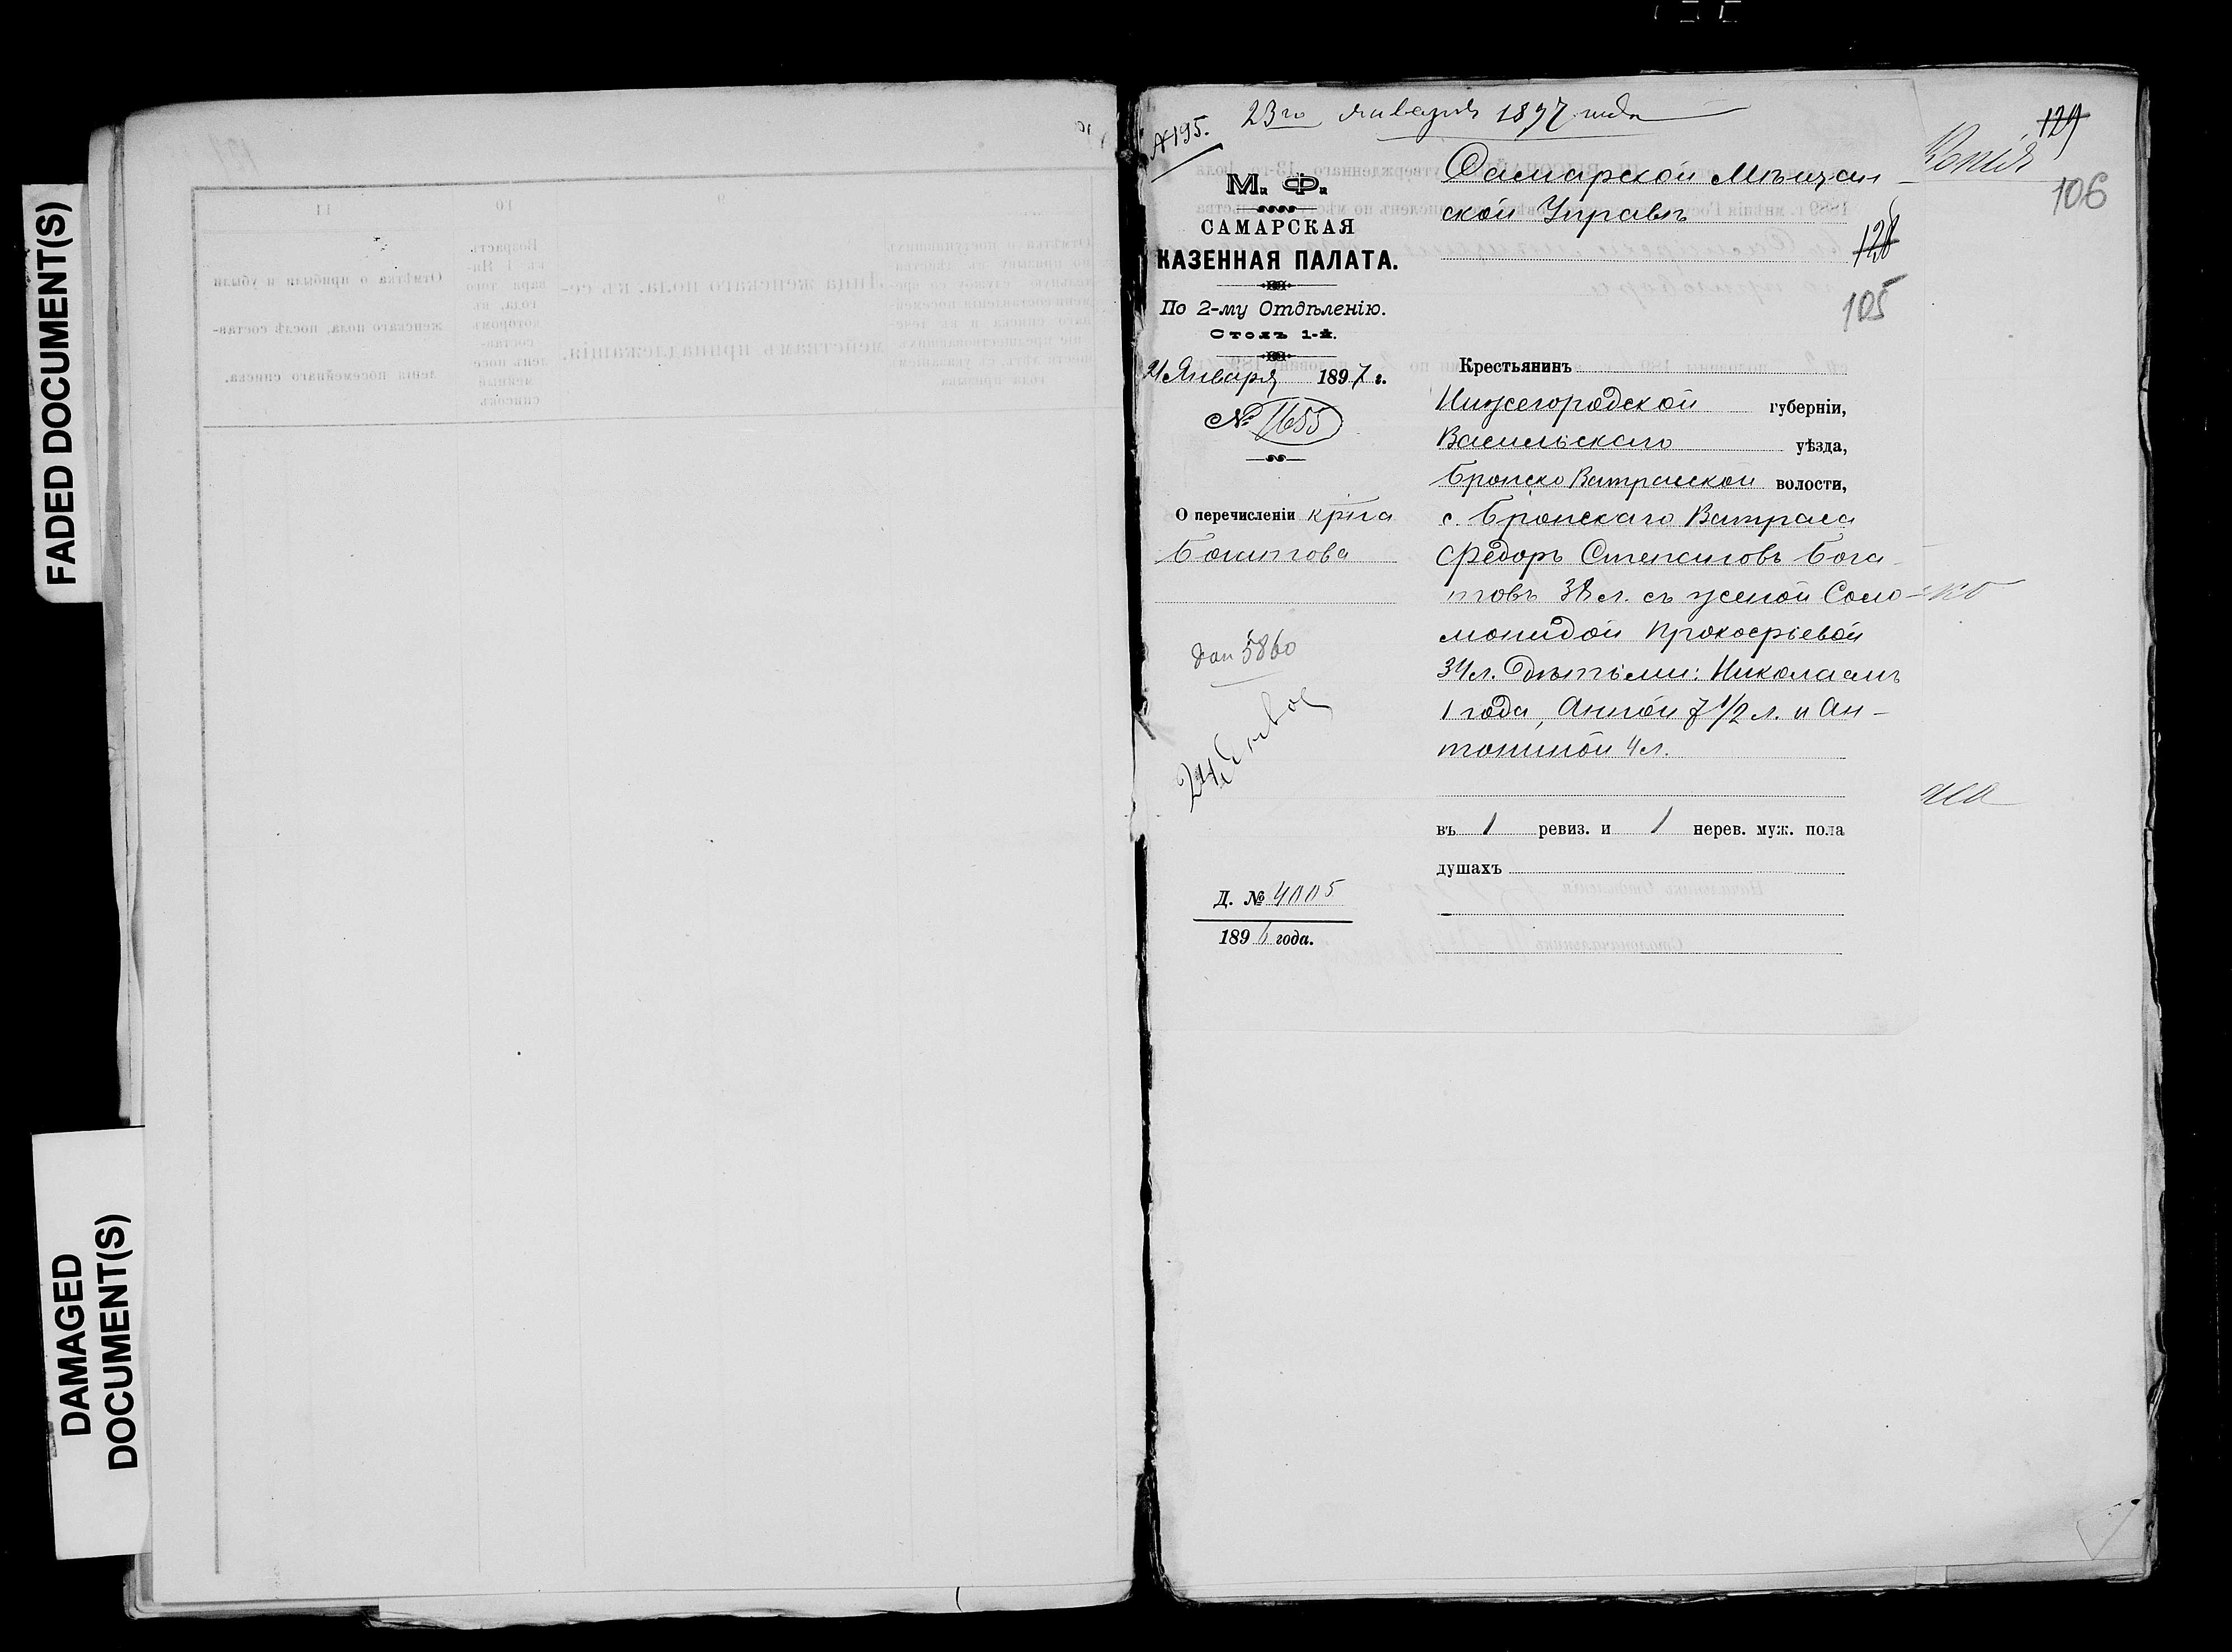 FADED DOCUMENT(S)
DAMAGED
DOCUMENT(S)
11
10
9
Отмѣтка о прибыли и убыли
женскаго пола, послѣ состав-
ленія посемейнаго списка.
Возрастъ
къ 1 Ян-
варя того
года, въ
которомъ
состав-
ленъ посе-
мейный
списокъ
Лица женскаго пола, къ се-
мействамъ принадлежащія.
№ 195.
23го января 1897 года
Копія
129
106
128
105
М. Ф.
САМАРСКАЯ
КАЗЕННАЯ ПАЛАТА.
По 2-му Отдѣленію.
Столъ 1-й.
21 Января 1897 г.
№ 1655
О перечисленіи кр-на
Богатова
5860
Д. № 4005
1896 года.
Самарской Мѣщан-
ской Управѣ
Крестьянинъ
Нижегородской губерніи,
Васильскаго уѣзда,
Бронско Ватрасской волости,
с. Бронскаго Ватраса
Федоръ Степановъ Бога-
товъ 38 л. съ женой Соло-
монидой Прокофьевой
34 л. дѣтьми: Николаемъ
1 года, Анной 7 1/2 л. и Ан-
тониной 4 л.
въ 1 ревиз. и 1 нерев. муж. пола
душахъ